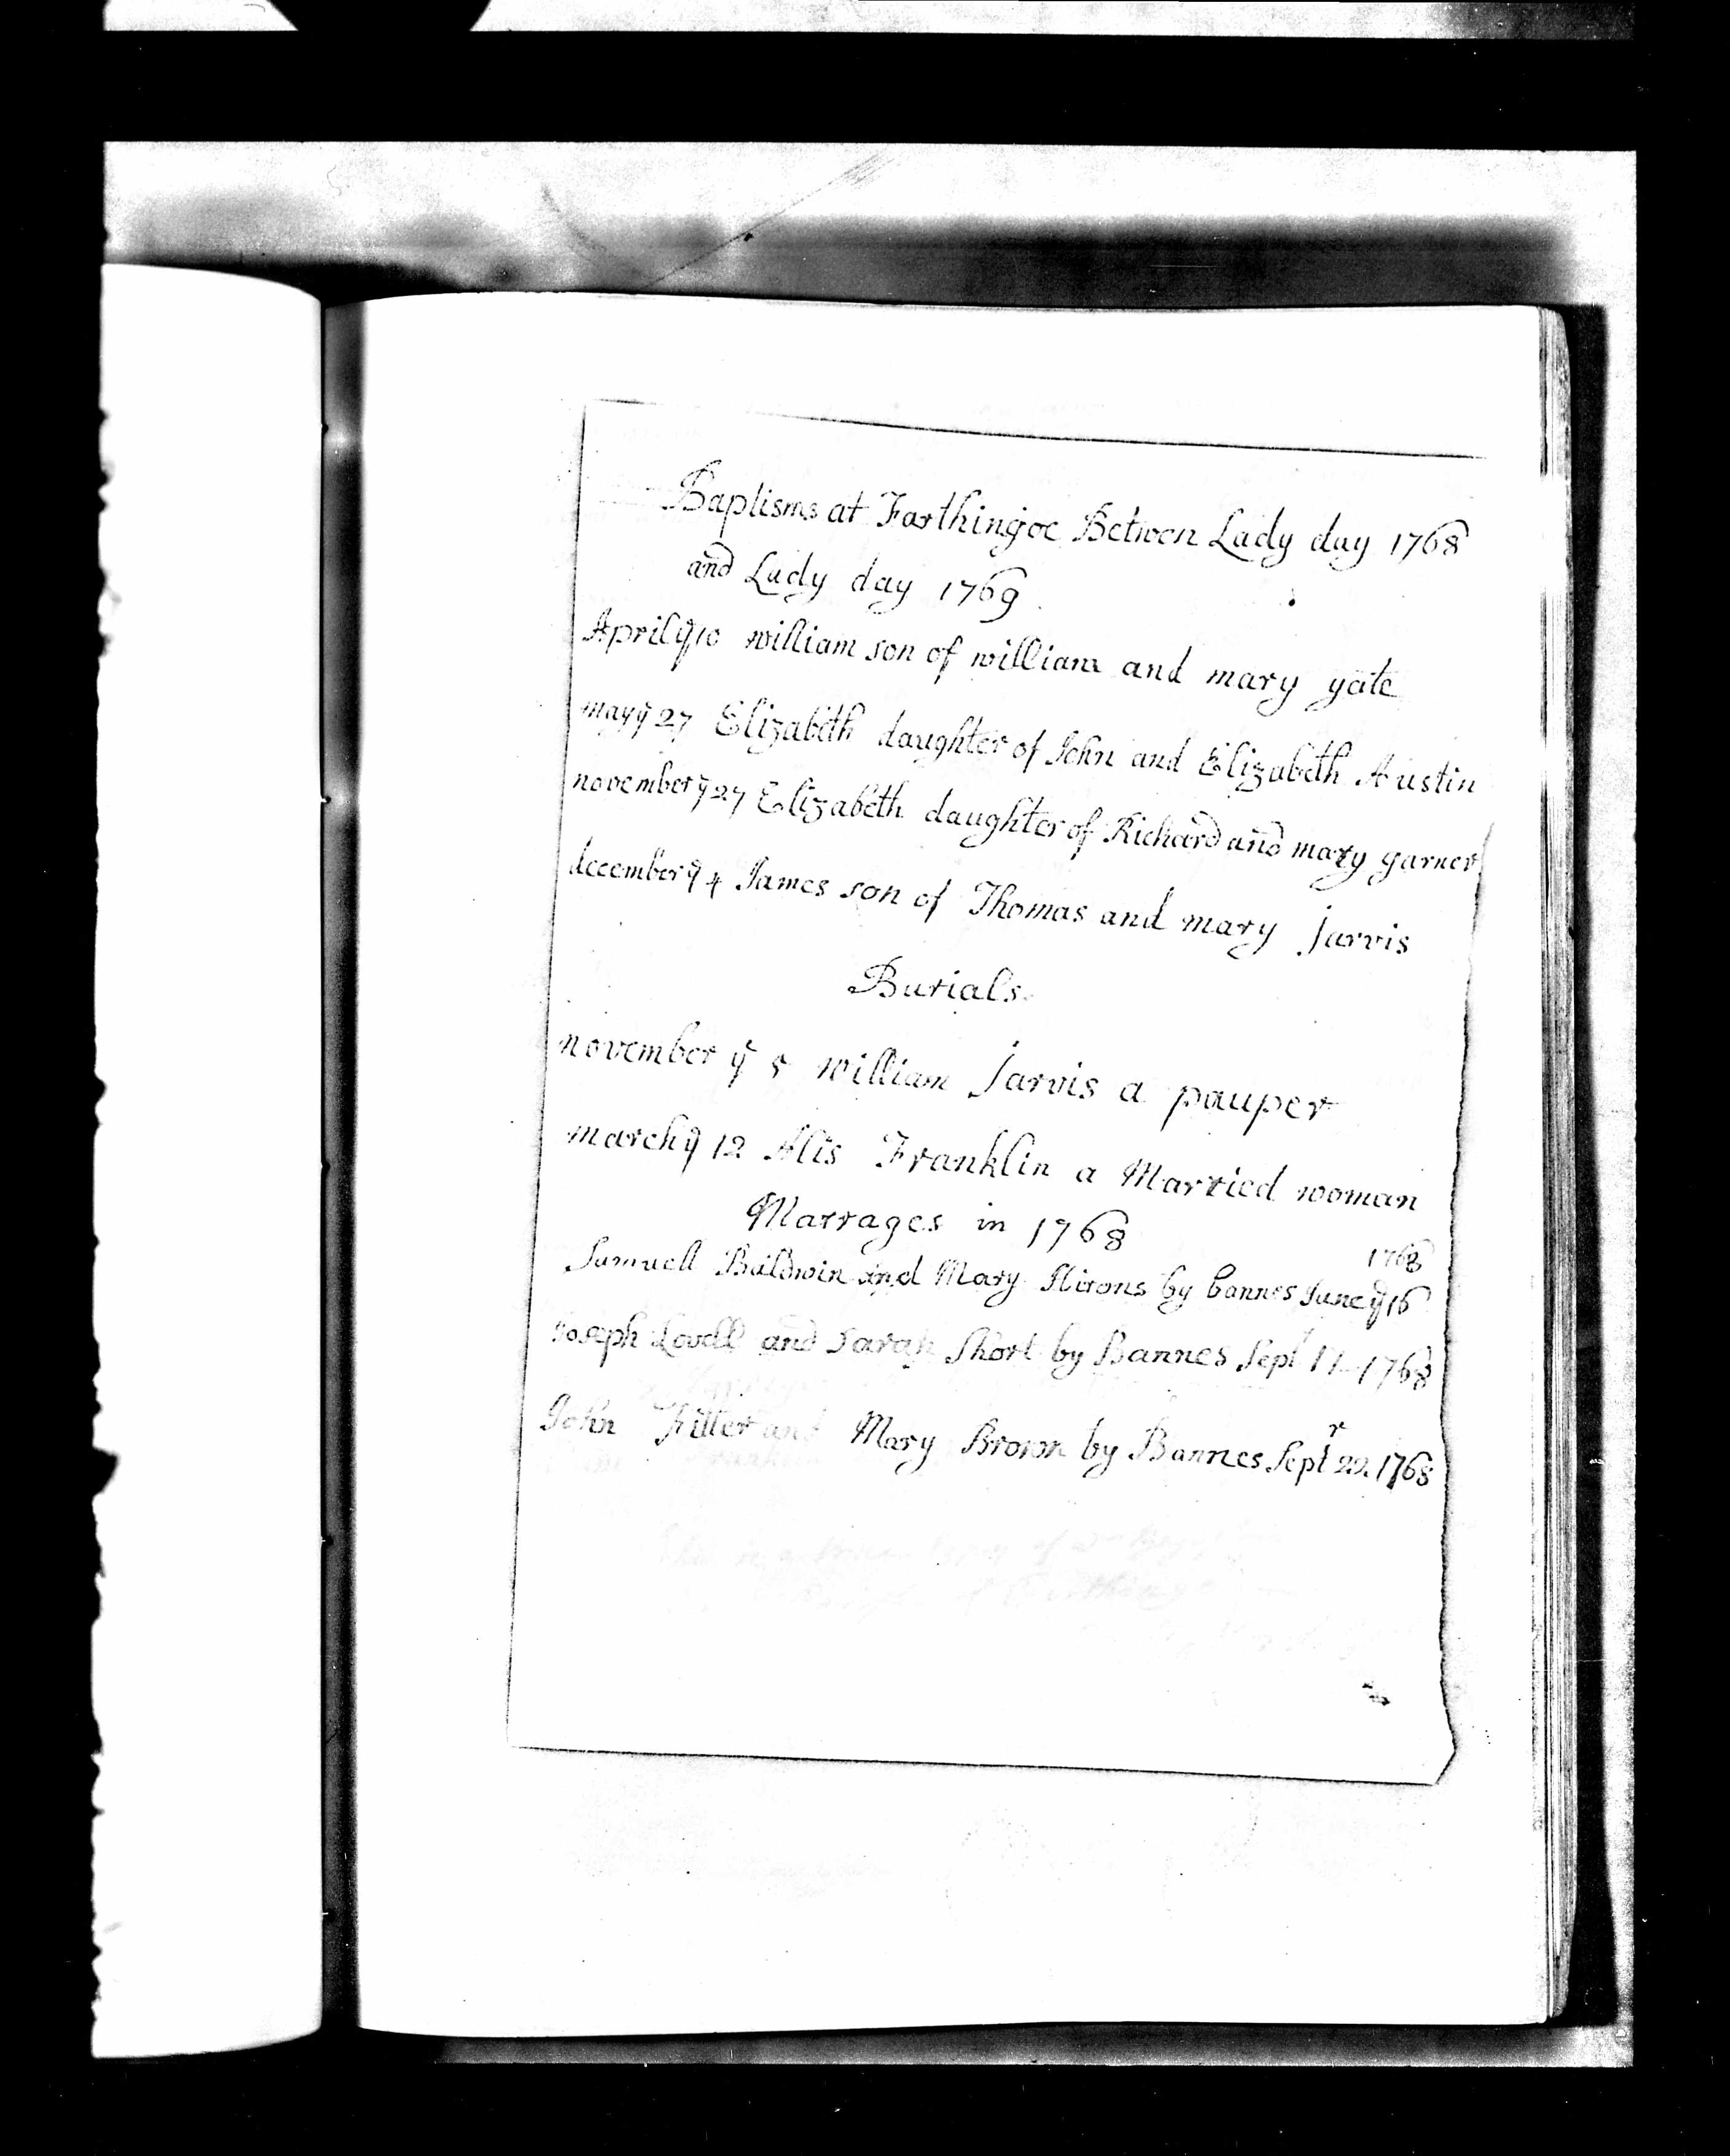 Baptisms at Farthingoe Betwen Lady day 1768
and Lady day 1769
April ye 10 william son of william and mary yate
may ye 27 Elizabeth daughter of John and Elizabeth Austin
november ye 27 Elizabeth daughter of Richard and mary garner
december ye 4 James son of Thomas and mary Jarvis
Burials
november ye 5 william Jarvis a pauper
march ye 12 Alis Franklin a Married woman
Marrages in 1768
1768
Samuell Baldwin and Mary Hirons by bannes June ye 16
Joseph Lovell and Sarah Short by Bannes Sept 17 1768
John Fitter and Mary Brown by Bannes Septr 22 1768